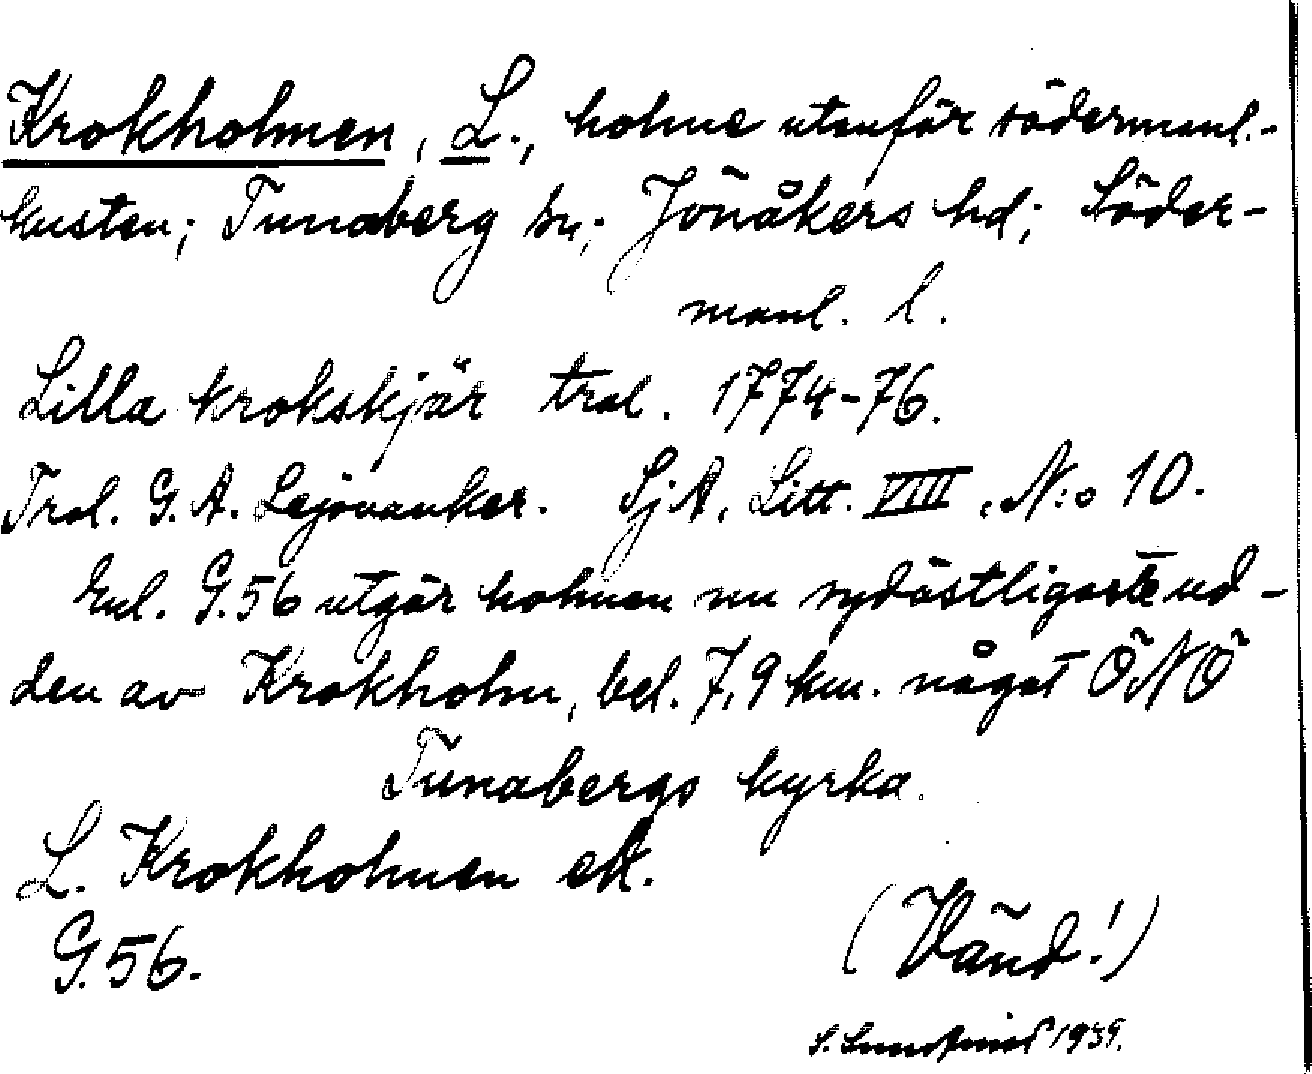 Krokholmen, L., holme utanför södermanl.-
kusten; Tunaberg sn; Jönåkers hd; Söder-
manl. l.
Lilla krokskjär tral. 1774-76.
Tral. G. A. Lejonanker. SjA, Litt. VIII, N:o 10.
Enl. G.56 utgör holmen nu sydöstligaste ud-
den av Krokholm, bel. 7,9 km. något ÖNÖ
Tunabergs kyrka.
L. Krokholmen ek.
G.56.
(Vänd!)
S. 1939.